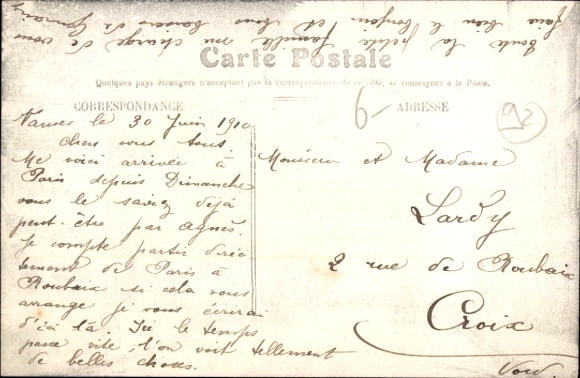 toute la petite famille me charge de vous
faire bien le bonjour et bons baisers de
Carte Postale
Quelques pays étrangers n'acceptant pas la correspondance de ce côté, se renseigner à la Poste.
CORRESPONDANCE
ADRESSE
6-
92
Vanves le 30 Juin 1910
Chers vous tous.
Me voici arrivée à
Paris depuis Dimanche
vous le savez déjà
peut-être par Agnès.
Je compte partir direc
tement de Paris à
Roubaix si cela vous
arrange je vous écrirai
d'ici là. Ici le temps
passe vite, l'on voit tellement
de belles choses.
Monsieur et Madame
Lardy
2 rue de Roubaix
Croix
Nord.